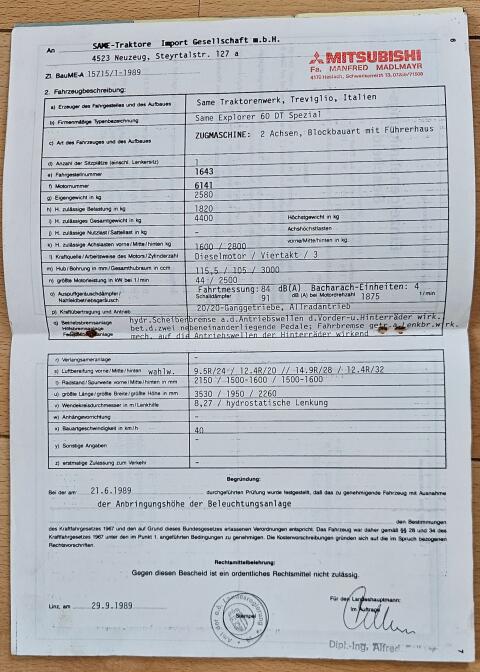 An SAME-Traktore Import Gesellschaft m.b.H.
4523 Neuzeug, Steyrtalstr. 127 a
Zl. BauME-A 15715/1-1989
MITSUBISHI
Fa. MANFRED MADLMAYR
6
2. Fahrzeugbeschreibung:
a) Erzeuger des Fahrgestelles und des Aufbaues Same Traktorenwerk, Treviglio, Italien
b) Firmenmäßige Typenbezeichnung Same Explorer 60 DT Spezial
c) Art des Fahrzeuges und des Aufbaues ZUGMASCHINE: 2 Achsen, Blockbauart mit Führerhaus
d) Anzahl der Sitzplätze (einschl. Lenkersitz) 1
e) Fahrgestellnummer 1643
f) Motornummer 6141
g) Eigengewicht in kg 2580
h) H. zulässige Belastung in kg 1820
i) H. zulässiges Gesamtgewicht in kg 4400 Höchstgewicht in kg
j) H. zulässige Nutzlast/Sattellast in kg - Achshöchstlasten
k) H. zulässige Achslasten vorne/Mitte/hinten kg 1600 / 2800 vorne/Mitte/hinten in kg:
l) Kraftquelle/Arbeitsweise des Motors/Zylinderzahl Dieselmotor / Viertakt / 3
m) Hub/Bohrung in mm/Gesamthubraum in ccm 115,5 / 105 / 3000
n) größte Motorleistung in kW bei 1/min 44 / 2500
o) Auspuffgeräuschdämpfer/ Fahrtmessung: 84 dB(A) Bacharach-Einheiten: 4
Nahfeldbetriebsgeräusch Schalldämpfer 91 dB (A) bei Motordrehzahl 1875 1/min
p) Kraftübertragung und Antrieb 20/20-Ganggetriebe, Allradantrieb
q) Betriebsbremsanlage hydr.Scheibenbremse a.d.Antriebswellen d.Vorder-u.Hinterräder wirk.
Hilfsbremsanlage bet.d.zwei nebeneinanderliegende Pedale; Fahrbremse
mech. auf die Antriebswellen der Hinterräder wirkend
r) Verlangsameranlage -
s) Luftbereifung vorne/Mitte/hinten wahlw. 9.5R/24 / 12.4R/20 // 14.9R/28 / 12.4R/32
t) Radstand/Spurweite vorne/Mitte/hinten in mm 2150 / 1500-1600 / 1500-1600
u) größte Länge/größte Breite/größte Höhe in mm 3530 / 1950 / 2260
v) Wendekreisdurchmesser in m/Lenkhilfe 8,27 / hydrostatische Lenkung
w) Anhängevorrichtung -
x) Bauartgeschwindigkeit in km/h 40
y) Sonstige Angaben -
z) erstmalige Zulassung zum Verkehr -
Begründung:
Bei der am 21.6.1989 durchgeführten Prüfung wurde festgestellt, daß das zu genehmigende Fahrzeug mit Ausnahme
der Anbringungshöhe der Beleuchtungsanlage
den Bestimmungen
des Kraftfahrgesetzes 1967 und den auf Grund dieses Bundesgesetzes erlassenen Verordnungen entspricht. Das Fahrzeug war daher gemäß §§ 28 und 34 des
Kraftfahrgesetzes 1967 unter den im Punkt 1. angeführten Bedingungen zu genehmigen. Die Kostenvorschreibungen gründen sich auf die im Spruch bezogenen
Rechtsvorschriften.
Rechtsmittelbelehrung:
Gegen diesen Bescheid ist ein ordentliches Rechtsmittel nicht zulässig.
Linz, am 29.9.1989
Stempel
Amt der o.ö. Landesregierung
Für den Landeshauptmann:
Im Auftrage
Dipl.-Ing. Alfred
7